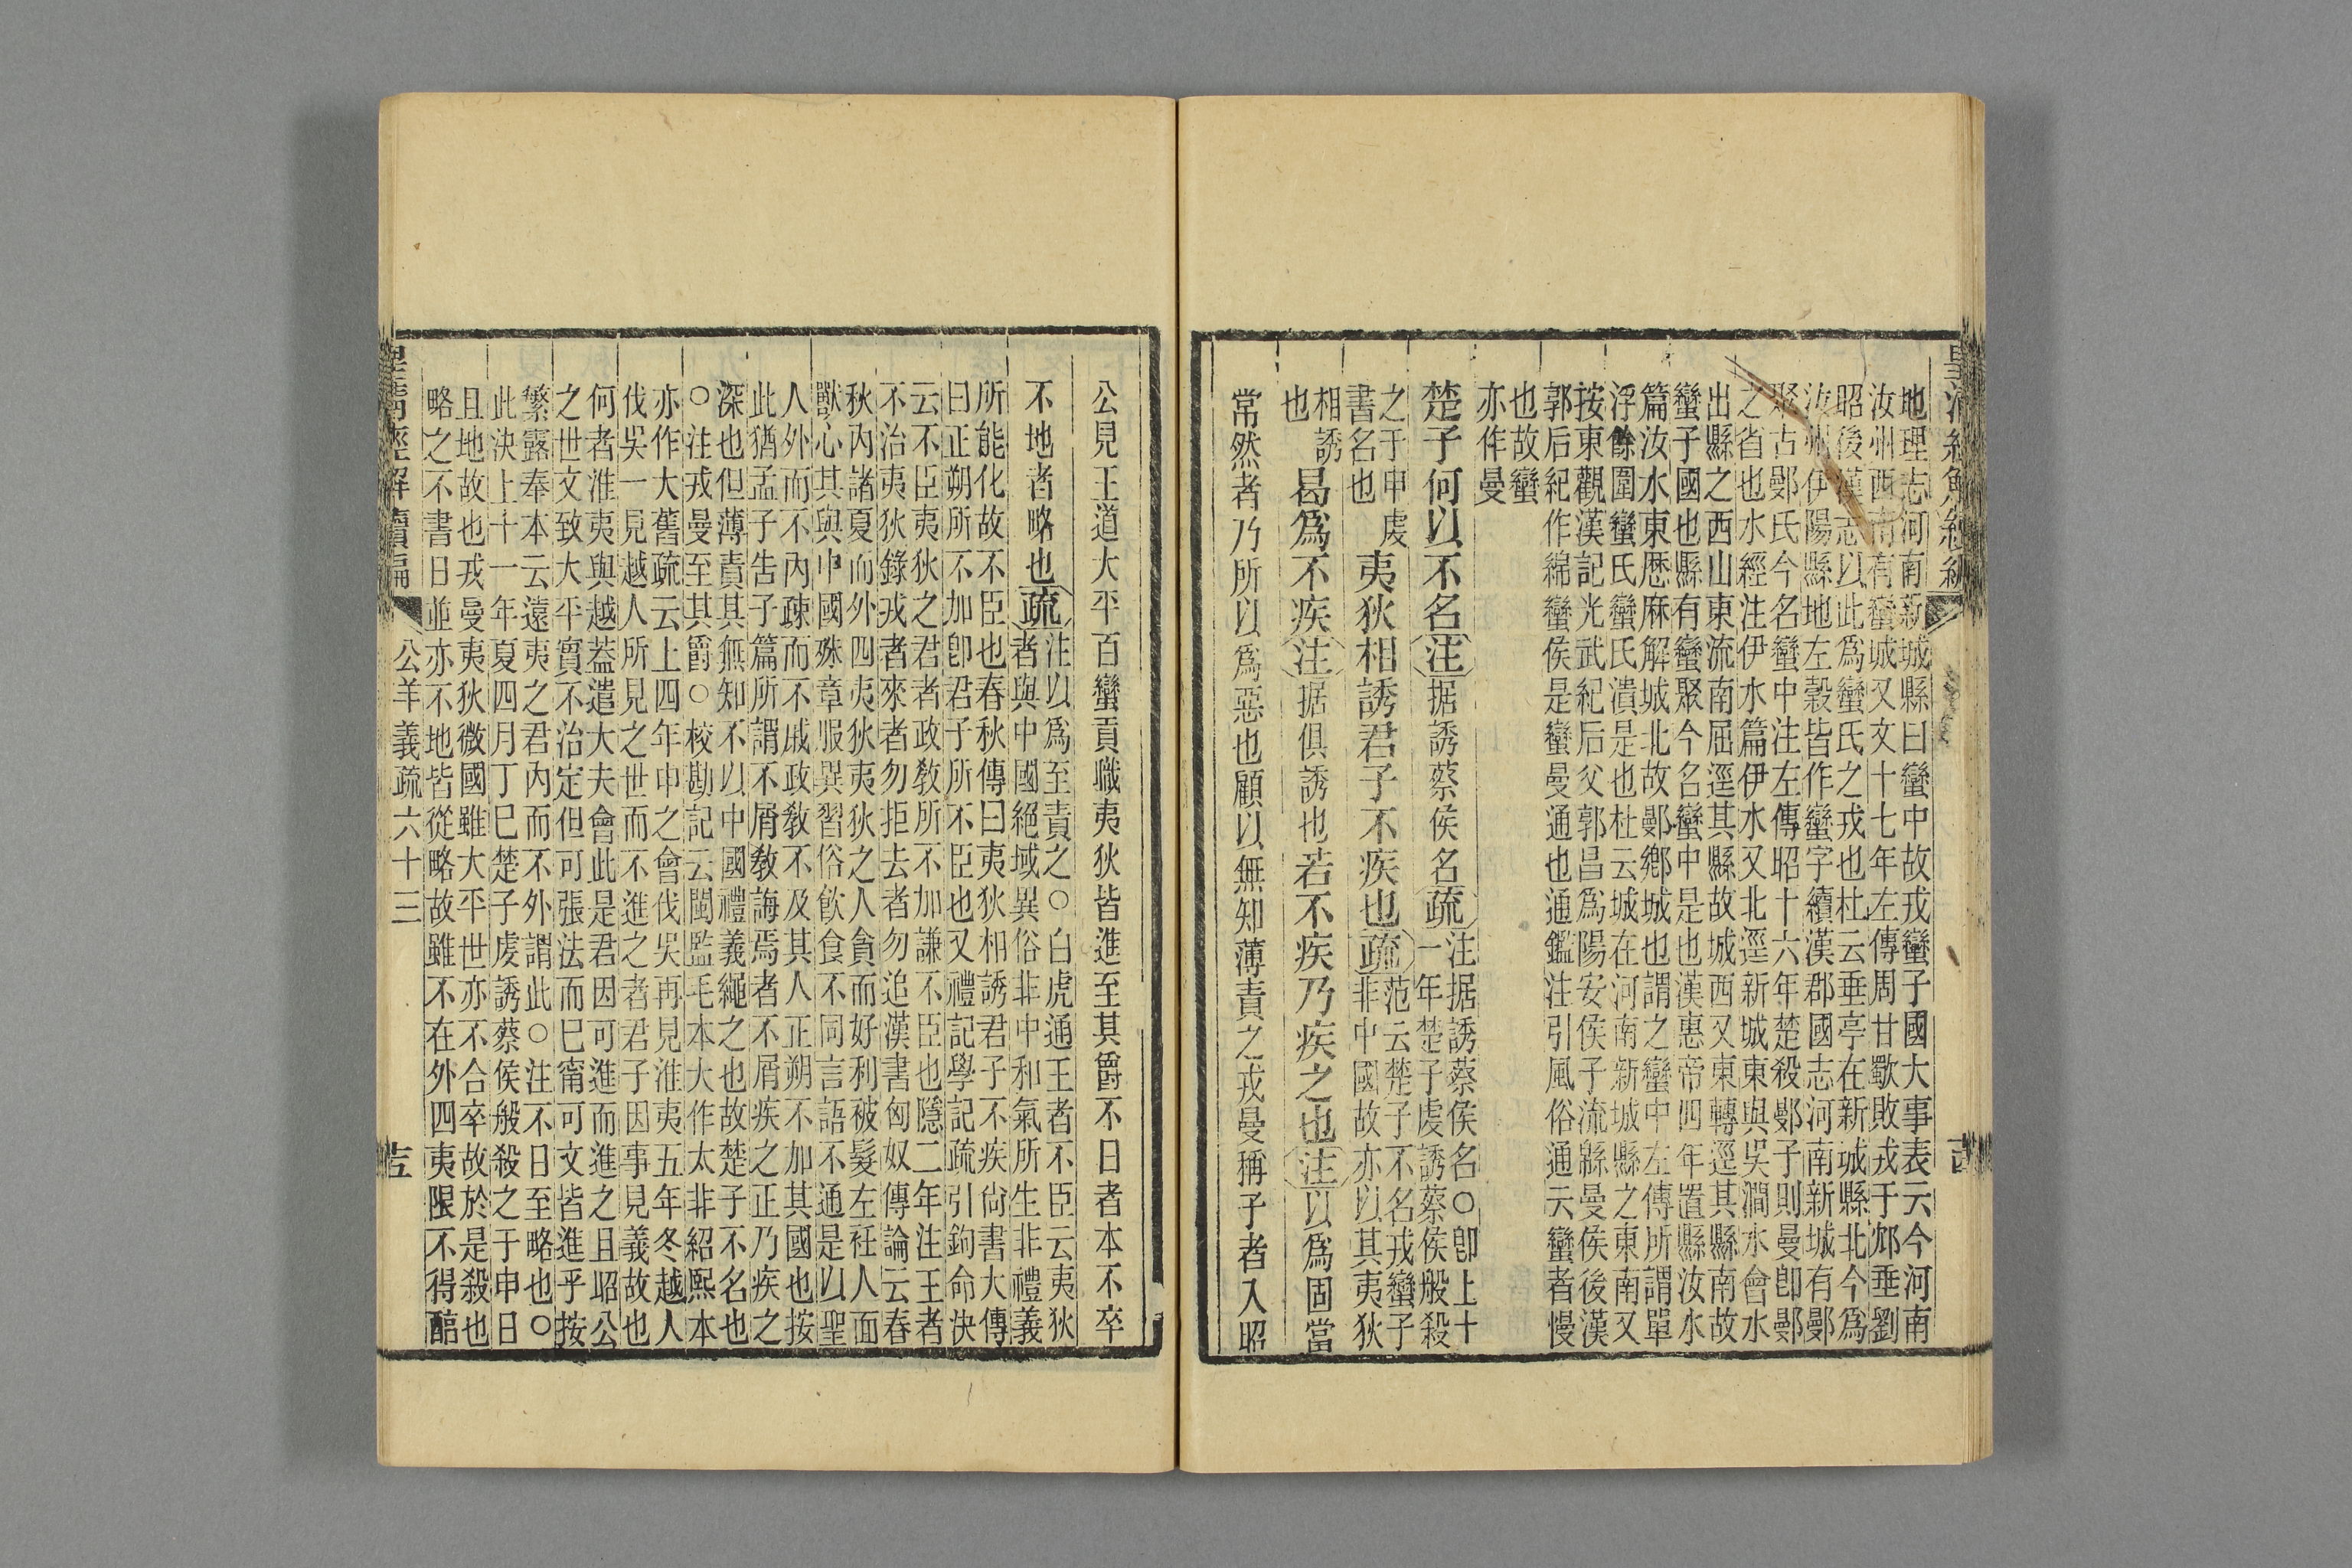 地理志河南新城縣曰蠻中故戎蠻子國大事表云今河南
汝州西南有蠻城又文十七年左傳周甘歜敗戎于邥垂劉
昭後漢志以此爲蠻氏之戎也杜云垂亭在新城縣北今爲
汝州伊陽縣地左穀皆作蠻字續漢郡國志河南新城有鄤
聚古鄤氏今名蠻中注左傳昭十六年楚殺鄤子則曼卽鄤
之省也水經注伊水篇伊水又北逕新城東與吳澗水會水
出縣之西山東流南屈逕其縣故城西又東轉逕其縣南故
蠻子國也縣有蠻聚今名蠻中是也漢惠帝四年置縣汝水
篇汝水東歷麻解城北故鄤鄉城也謂之蠻中左傳所謂單
浮餘圍蠻氏蠻氏潰是也杜云城在河南新城縣之東南又
按東觀漢記光武紀后父郭昌爲陽安侯子流緜曼侯後漢
郭后紀作綿蠻侯是蠻曼通也通鑑注引風俗通云蠻者慢
也故蠻
亦作曼
楚子何以不名注据誘蔡侯名疏注据誘蔡侯名○卽上十
一年楚子虔誘蔡侯般殺
之于申虔
書名也
夷狄相誘君子不疾也疏范云楚子不名戎蠻子
非中國故亦以其夷狄
相誘
也
曷爲不疾注据俱誘也若不疾乃疾之也注以爲固當
常然者乃所以爲惡也顧以無知薄責之戎曼稱子者入昭
公見王道大平百蠻貢職夷狄皆進至其爵不日者本不卒
不地者略也疏注以爲至責之○白虎通王者不臣云夷狄
者與中國絕域異俗非中和氣所生非禮義
所能化故不臣也春秋傳曰夷狄相誘君子不疾尙書大傳
曰正朔所不加卽君子所不臣也又禮記學記疏引鉤命決
云不臣夷狄之君者政敎所不加謙不臣也隱二年注王者
不治夷狄錄戎者來者勿拒去者勿追漢書匈奴傳論云春
秋內諸夏而外四夷夷狄之人貪而好利被髮左衽人面
獸心其與中國殊章服異習俗飮食不同言語不通是以聖
人外而不內疎而不戚政敎不及其人正朔不加其國也按
此猶孟子吿子篇所謂不屑敎誨焉者不屑疾之正乃疾之
深也但薄責其無知不以中國禮義繩之也故楚子不名也
○注戎曼至其爵○校勘記云閩監毛本大作太非紹熙本
亦作大舊疏云上四年申之會伐吳再見淮夷五年冬越人
伐吳一見越人所見之世而不進之者君子因事見義故也
何者淮夷與越蓋遣大夫會此是君因可進而進之且昭公
之世文致大平實不治定但可張法而已甯可文皆進乎按
繁露奉本云遠夷之君內而不外謂此○注不日至略也○
此決上十一年夏四月丁巳楚子虔誘蔡侯般殺之于申日
且地故也戎曼夷狄微國雖大平世亦不合卒故於是殺也
略之不書日並亦不地皆從略故雖不在外四夷限不得醕
公羊義疏六十三